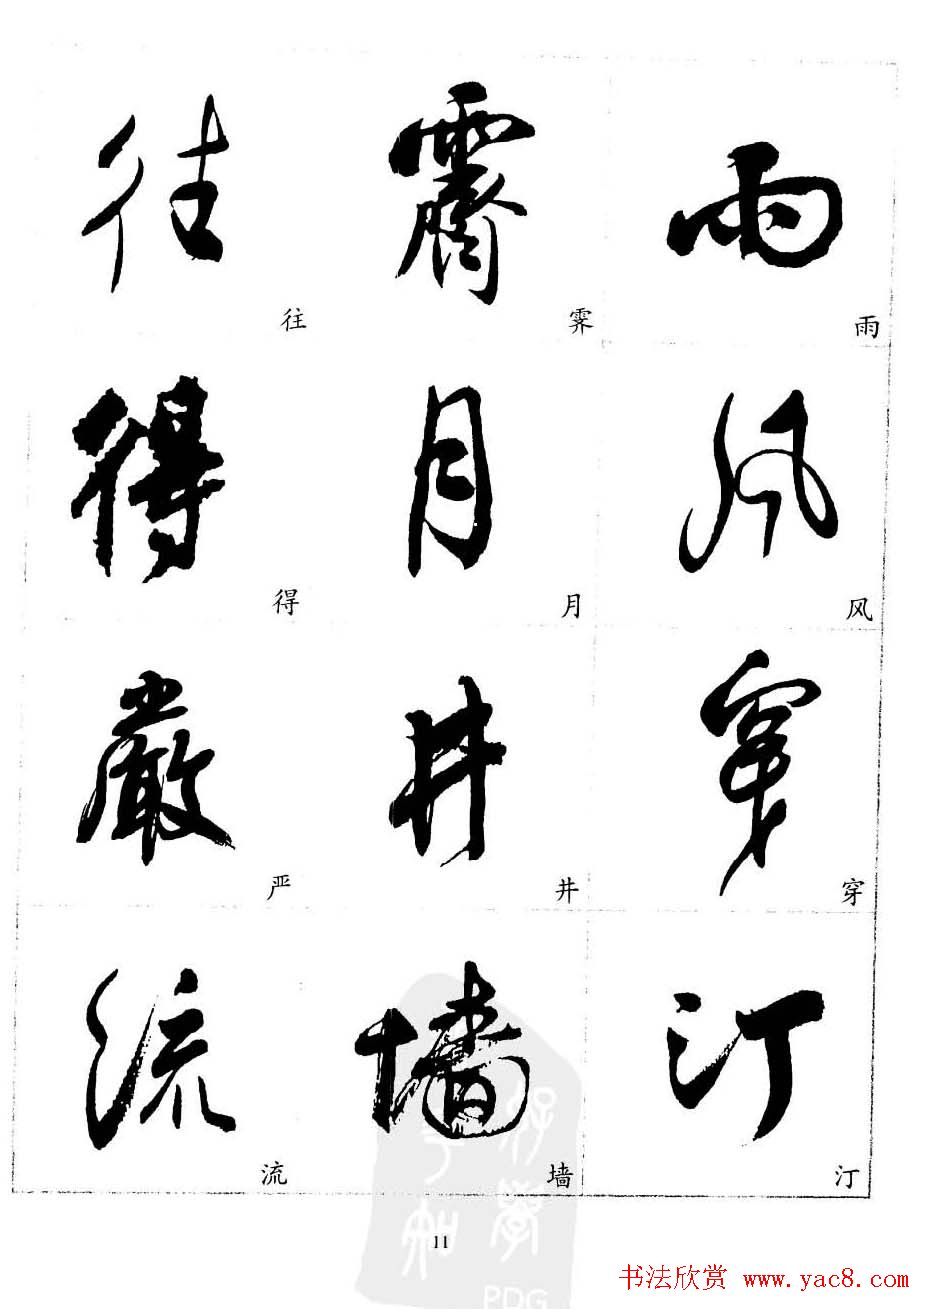 雨
风
穿
汀
雨
风
穿
汀
霽
月
井
墙
霁
月
井
墙
往
得
嚴
流
往
得
严
流
11
PDG
书法欣赏 www.yac8.com